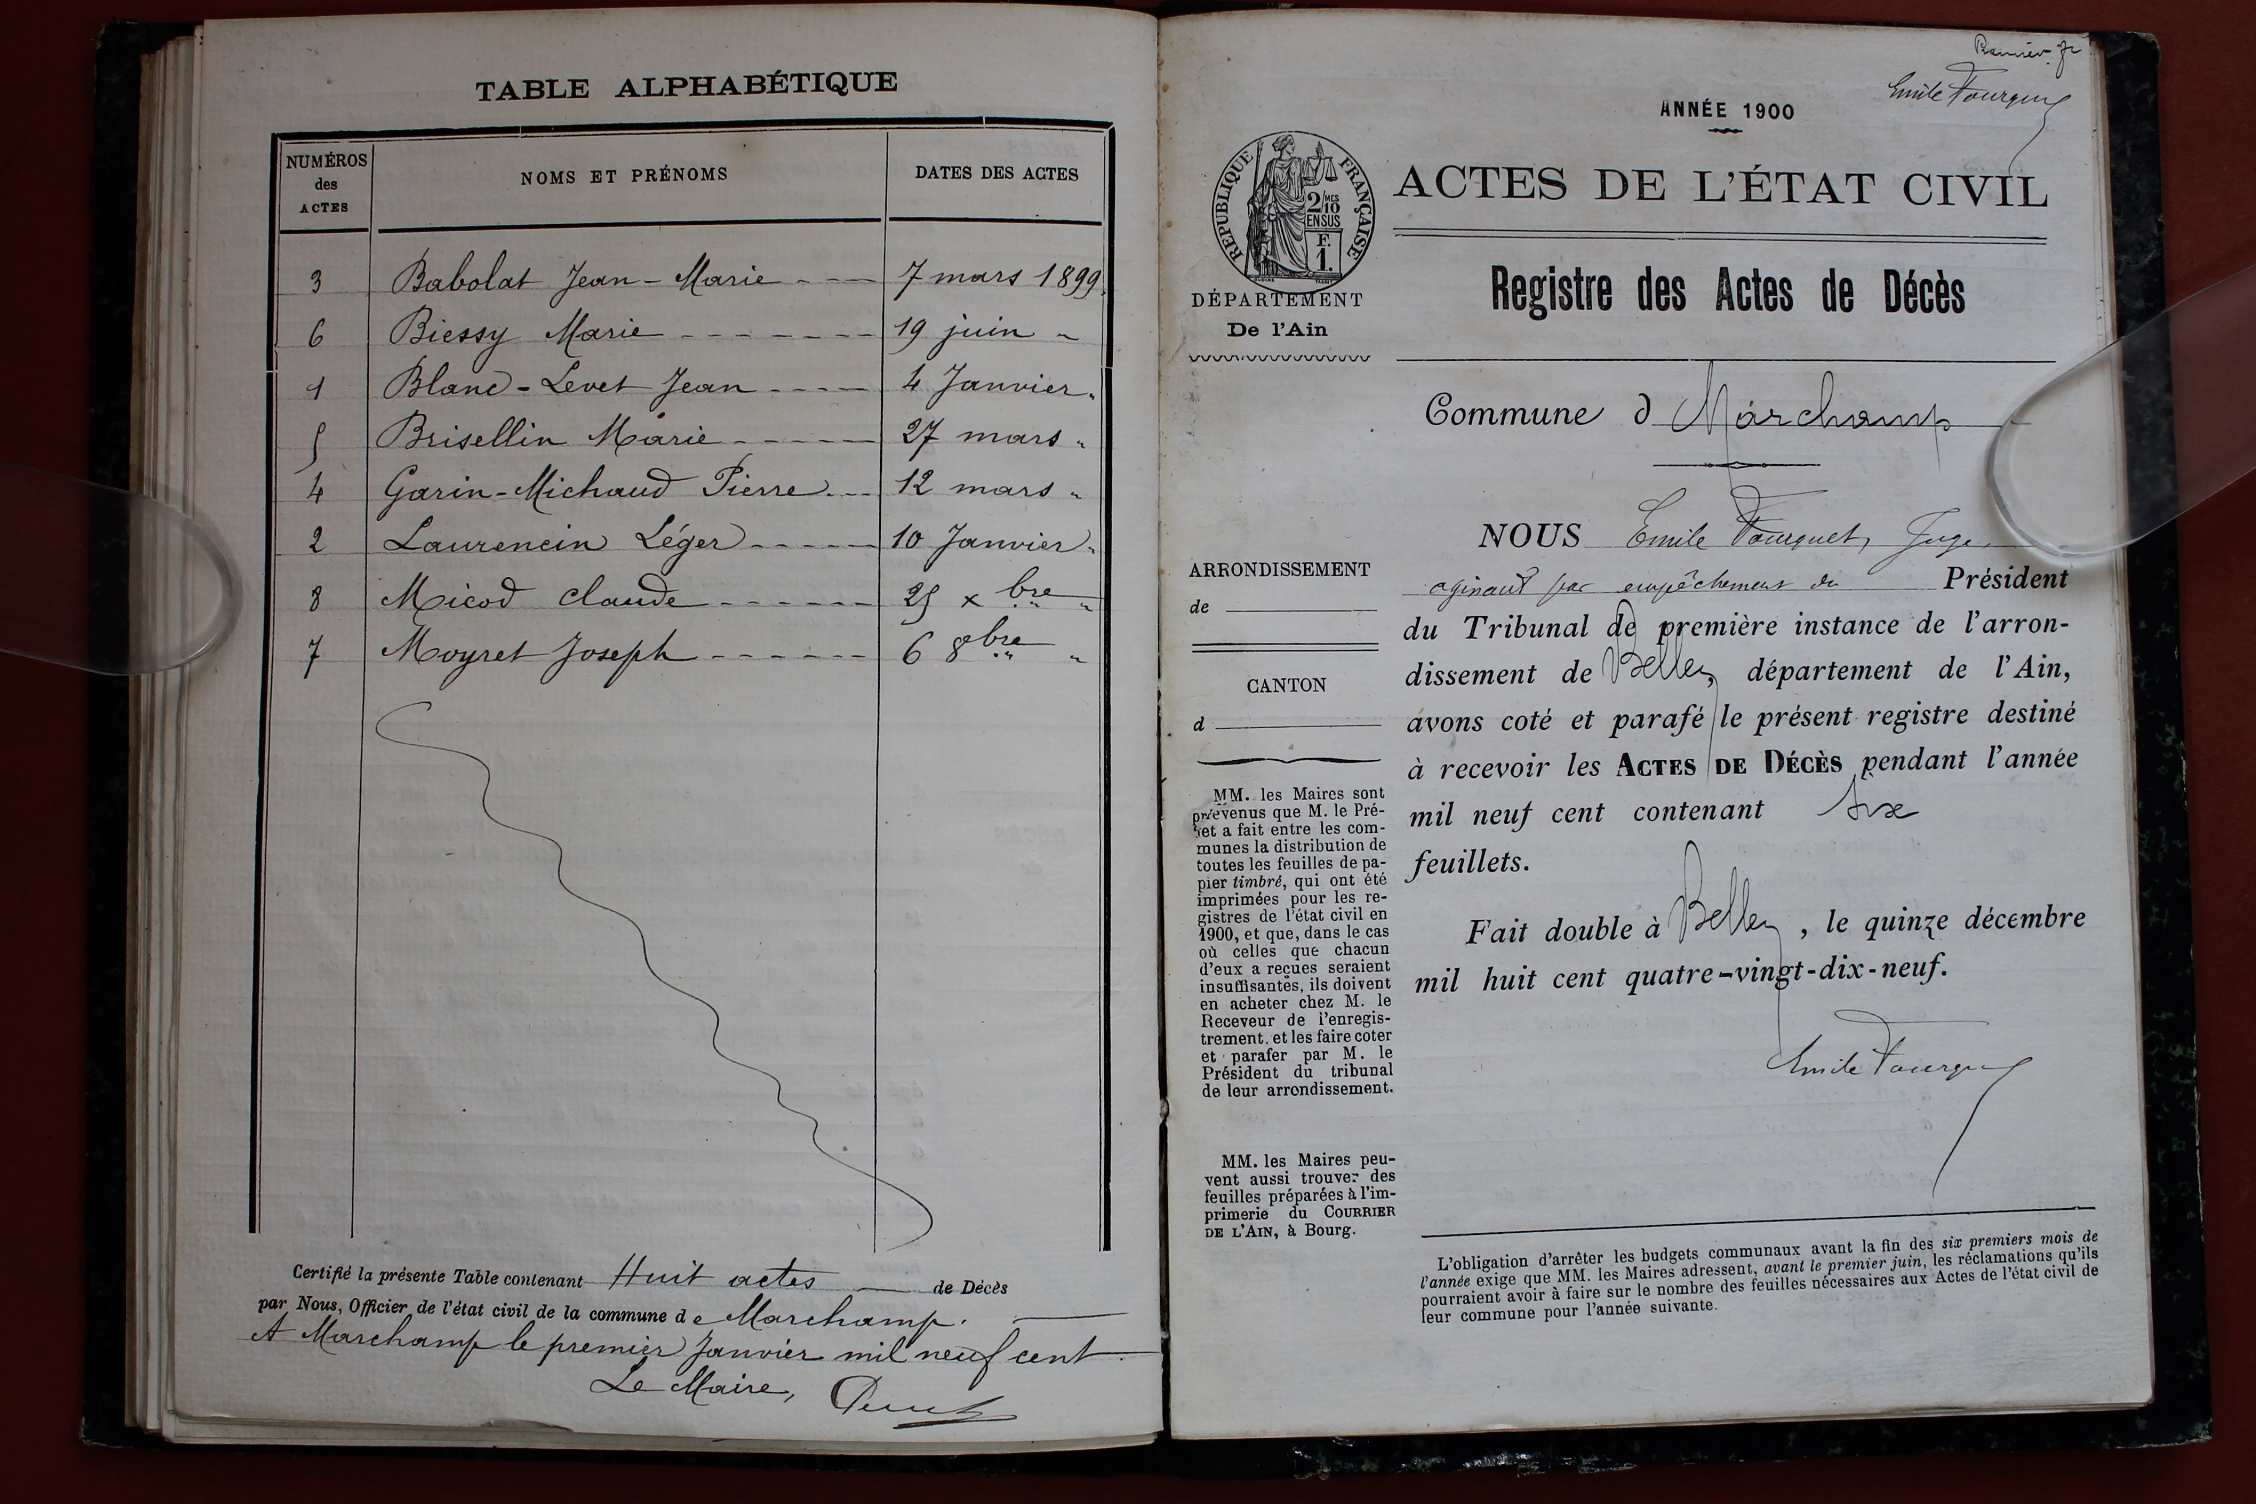 TABLE ALPHABÉTIQUE
NUMÉROS des ACTES
NOMS ET PRÉNOMS
DATES DES ACTES
3 Babolat Jean-Marie 7 mars 1899
6 Biessy Marie 19 juin "
1 Blanc-Levet Jean 4 Janvier "
5 Brisellin Marie 27 mars "
4 Garin-Michaud Pierre 12 mars "
2 Laurencin Léger 10 Janvier "
8 Micod Claude 25 xbre "
7 Moyret Joseph 6 8bre "
Certifié la présente Table contenant Huit actes de Décès
par Nous, Officier de l'état civil de la commune de Marchamp.
A Marchamp le premier Janvier mil neuf cent.
Le Maire,
Emile Fourquet
ANNÉE 1900
RÉPUBLIQUE FRANÇAISE
2/10 MES
EN SUS
F.
1.
ACTES DE L'ÉTAT CIVIL
Registre des Actes de Décès
DÉPARTEMENT
De l'Ain
Commune d Marchamp
NOUS Emile Fourquet, Juge,
aginant par empêchement du Président
du Tribunal de première instance de l'arron-
dissement de Belley, département de l'Ain,
avons coté et parafé le présent registre destiné
à recevoir les ACTES DE DÉCÈS pendant l'année
mil neuf cent contenant six
feuillets.
Fait double à Belley, le quinze décembre
mil huit cent quatre-vingt-dix-neuf.
Emile Fourquet
ARRONDISSEMENT
de
CANTON
d
MM. les Maires sont
prévenus que M. le Pré-
fet a fait entre les com-
munes la distribution de
toutes les feuilles de pa-
pier timbré, qui ont été
imprimées pour les re-
gistres de l'état civil en
1900, et que, dans le cas
où celles que chacun
d'eux a reçues seraient
insuffisantes, ils doivent
en acheter chez M. le
Receveur de l'enregis-
trement, et les faire coter
et parafer par M. le
Président du tribunal
de leur arrondissement.
MM. les Maires peu-
vent aussi trouver des
feuilles préparées à l'im-
primerie du COURRIER
DE L'AIN, à Bourg.
L'obligation d'arrêter les budgets communaux avant la fin des six premiers mois de
l'année exige que MM. les Maires adressent, avant le premier juin, les réclamations qu'ils
pourraient avoir à faire sur le nombre des feuilles nécessaires aux Actes de l'état civil de
leur commune pour l'année suivante.